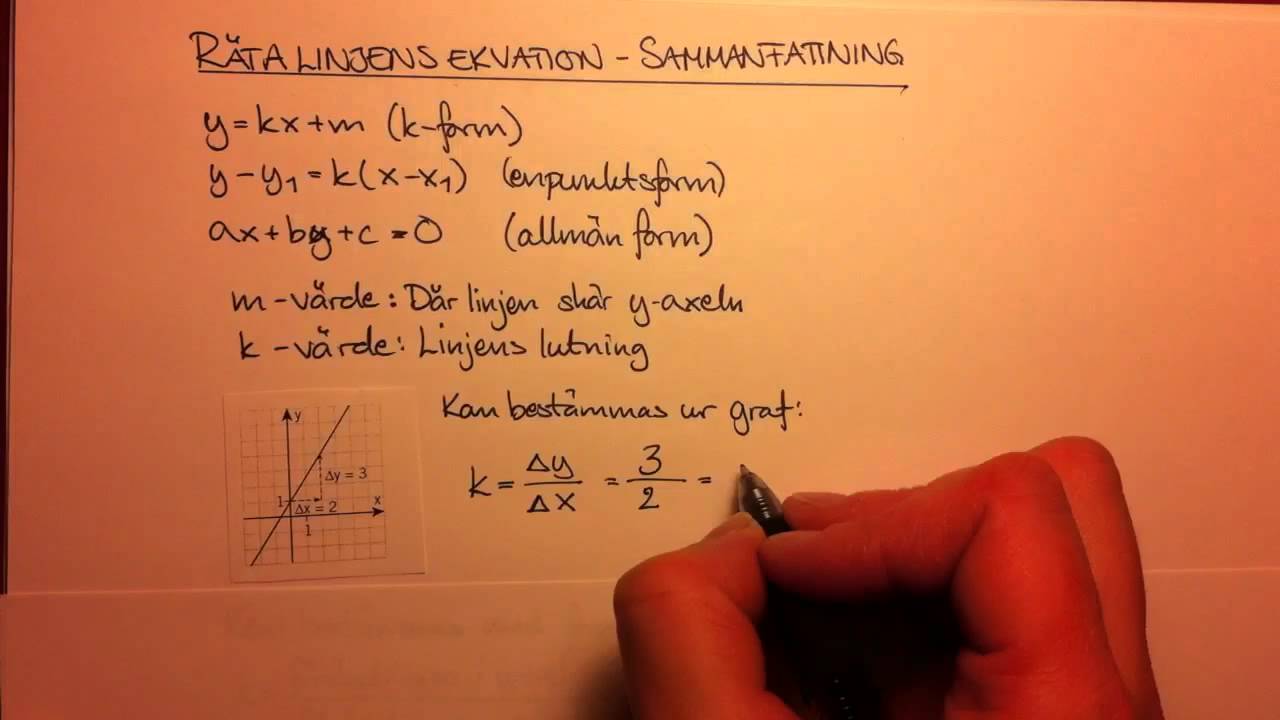 RÄTA LINJENS EKVATION - SAMMANFATTNING
y = kx + m (k-form)
y - y₁ = k(x - x₁) (enpunktsform)
ax + by + c = 0 (allmän form)
m-värde: Där linjen skär y-axeln
k-värde: Linjens lutning
Kan bestämmas ur graf:
k = Δy/Δx = 3/2 =
y
Δy = 3
1
x
Δx = 2
1